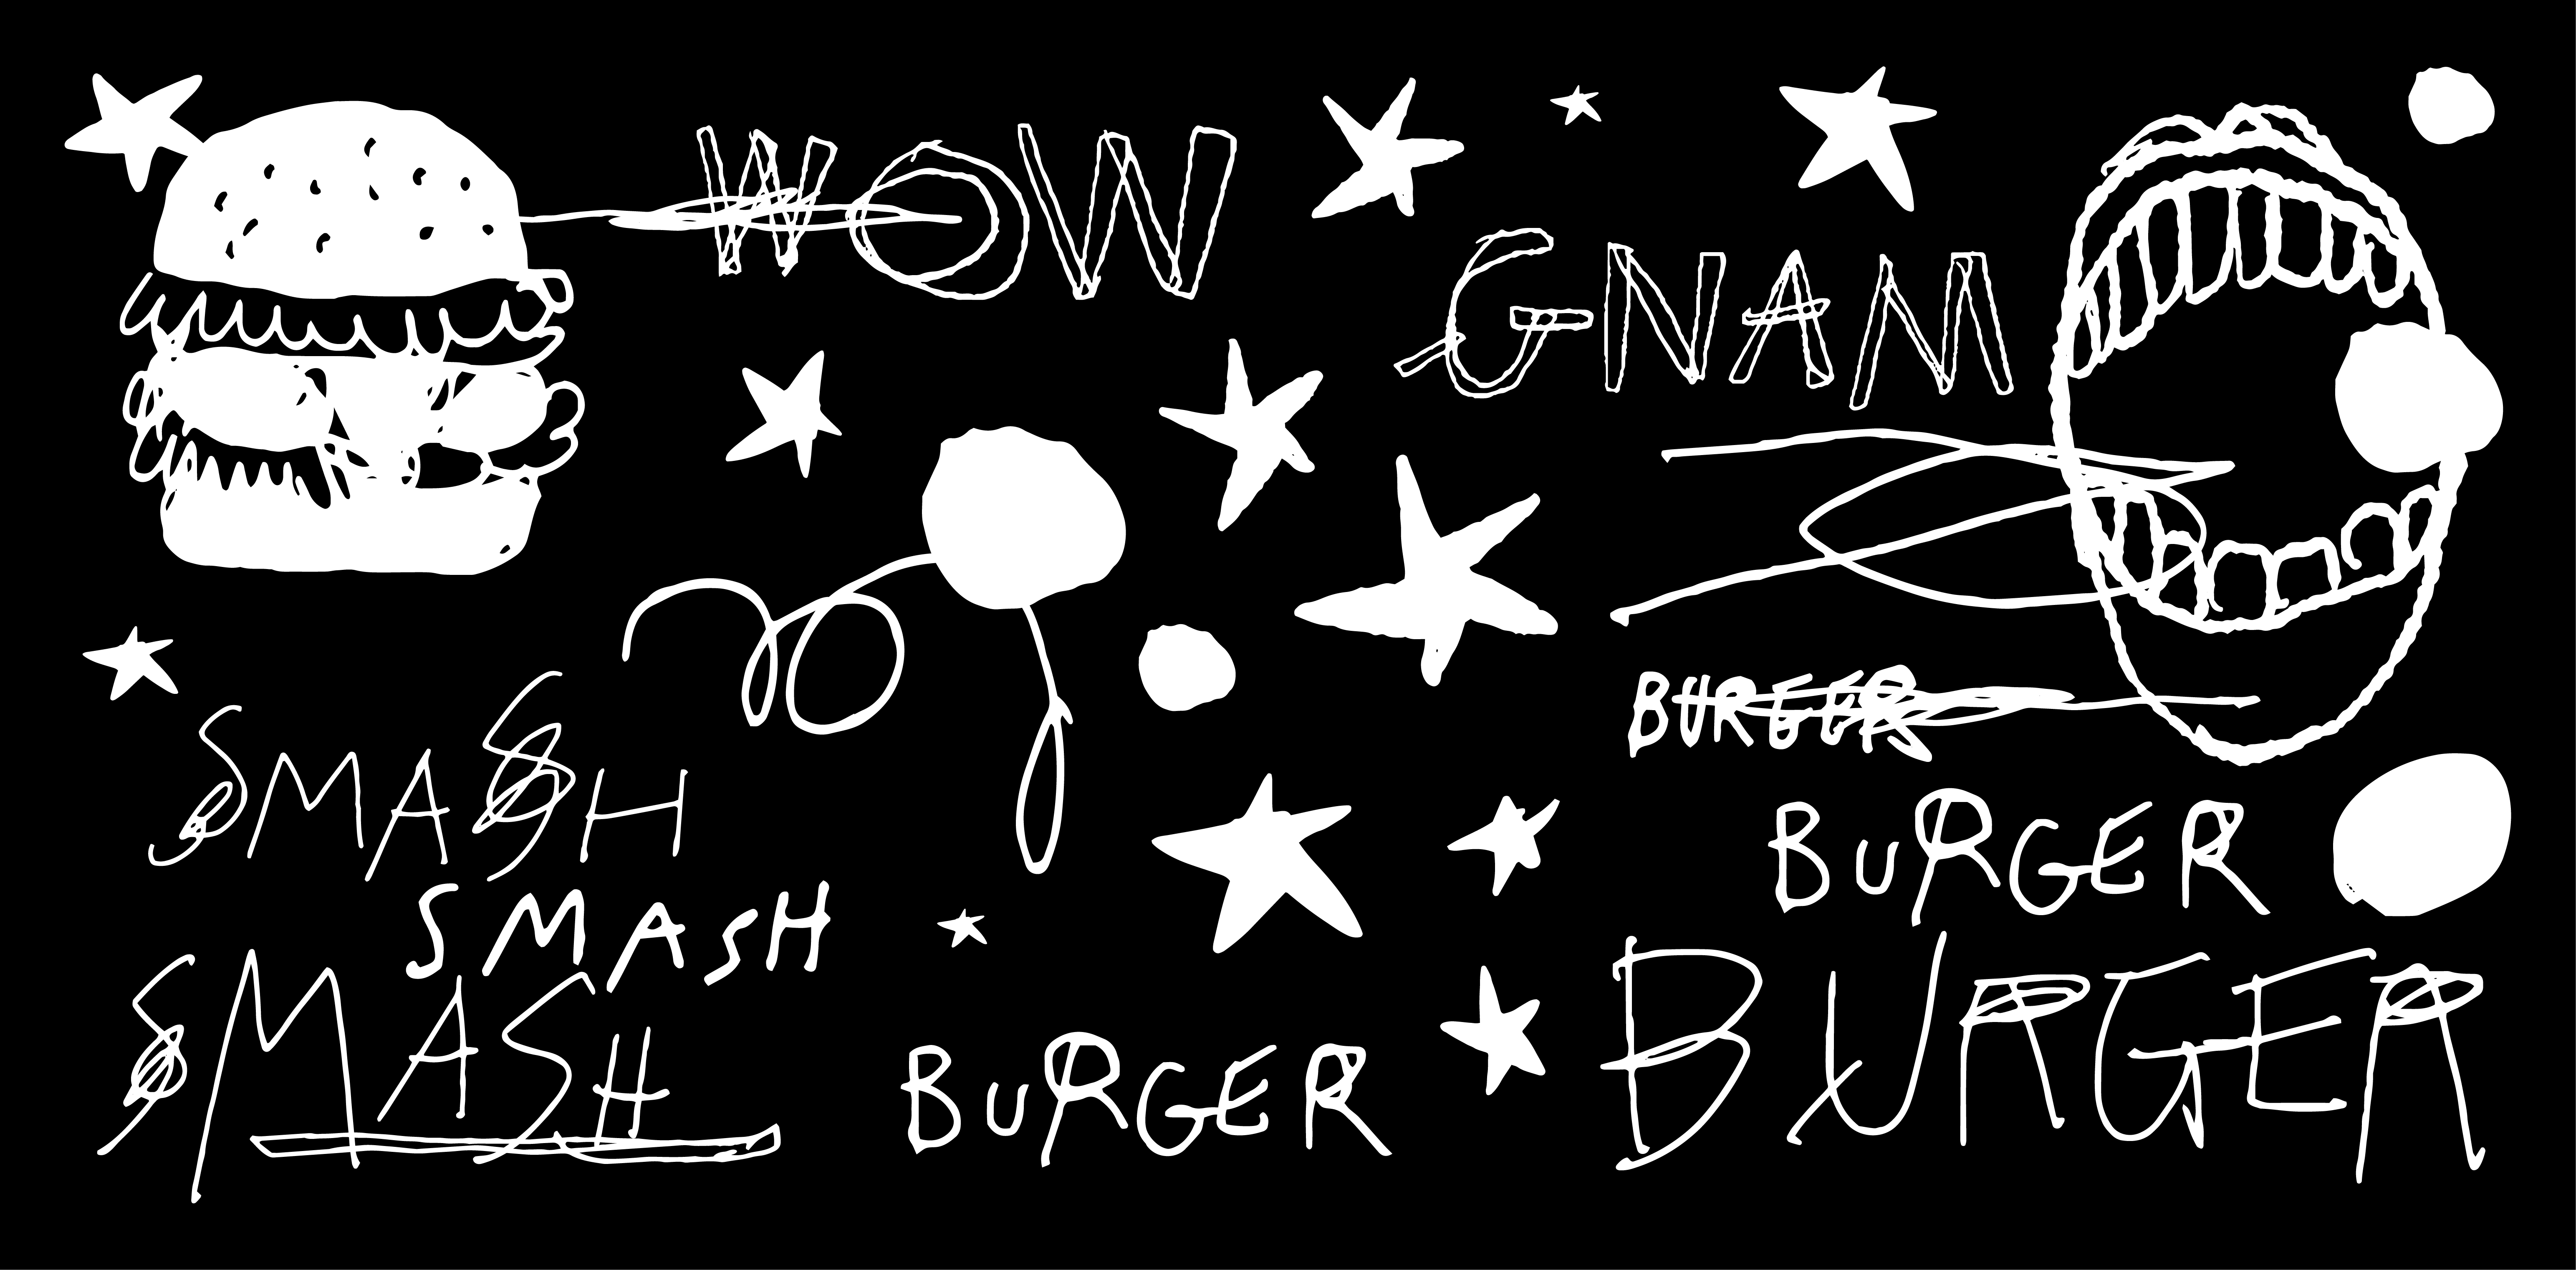 WOW
GNAM
BURGER
SMASH
BURGER
SMASH
SMASH
BURGER
BURGER